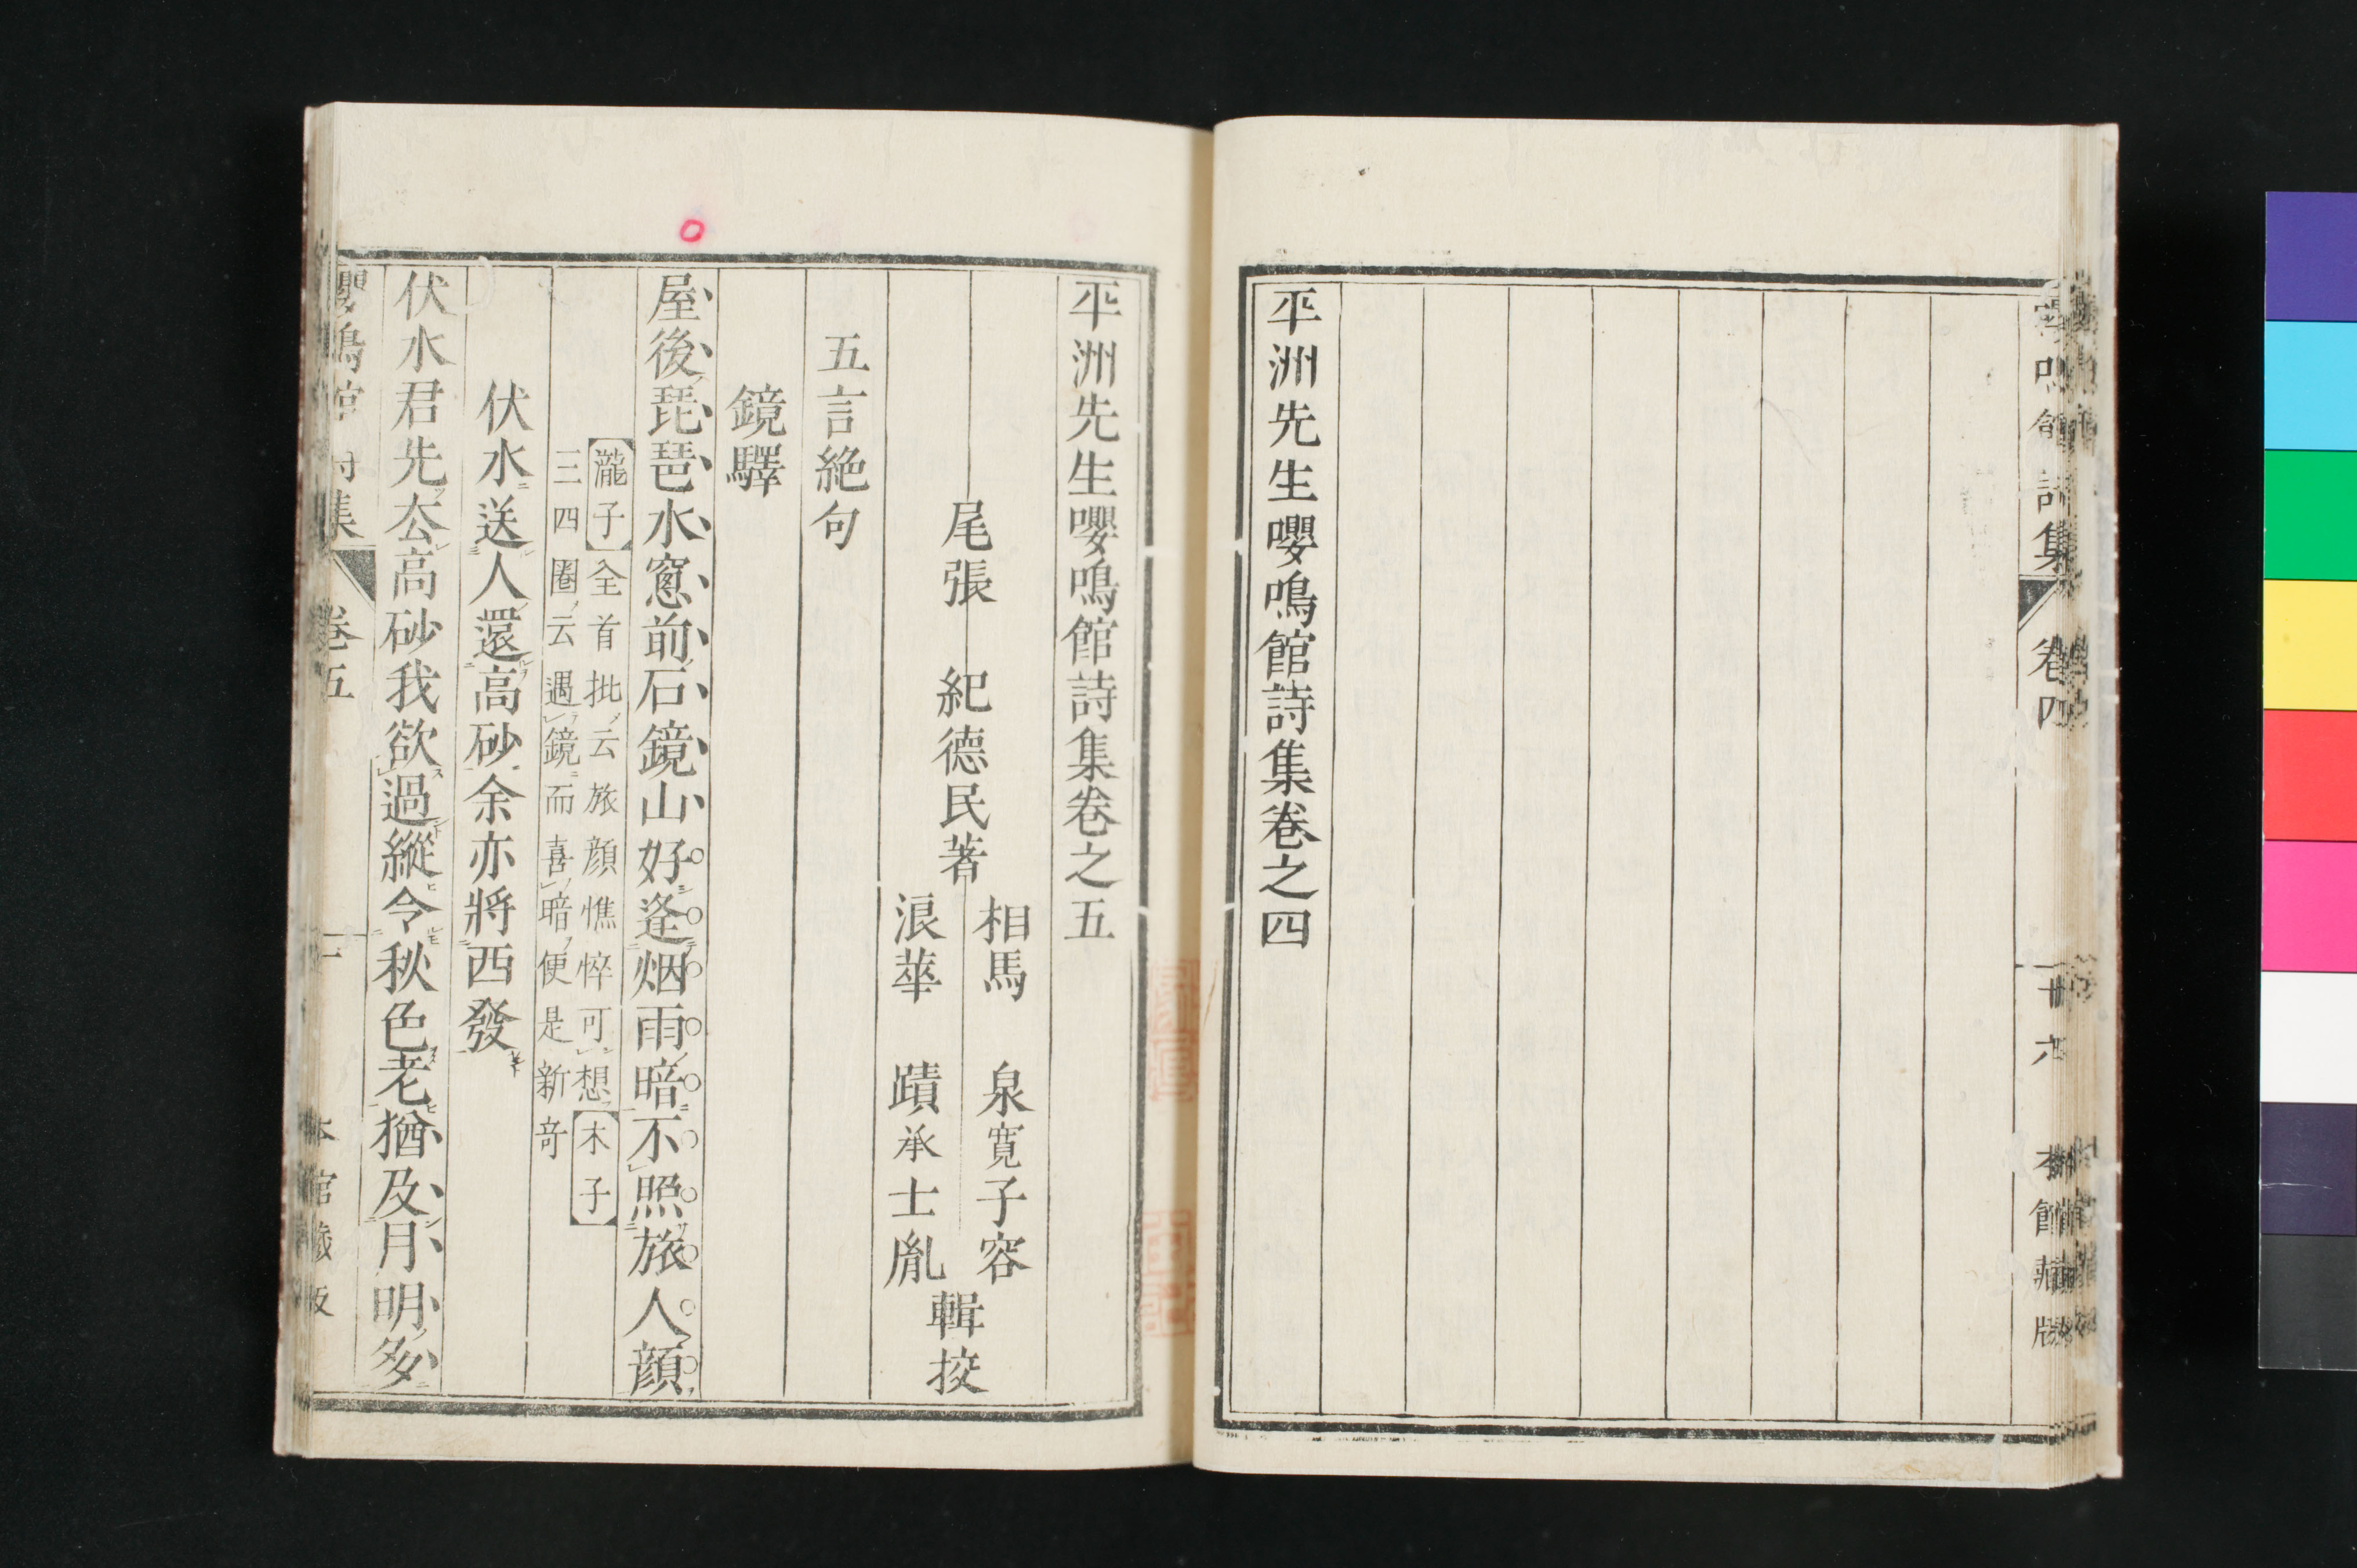 嚶鳴館詩集 卷四 十六 本館藏版
平洲先生嚶鳴館詩集卷之四
平洲先生嚶鳴館詩集卷之五
尾張 紀德民著
相馬 泉寬子容
浪華 蹟承士胤
輯挍
五言絶句
鏡驛
屋後琵琶水窻前石鏡山好逢烟雨暗不照旅人顔
【瀧子】全首批云旅顔憔悴可想【木子】
三四圈云遇鏡而喜暗便是新奇
伏水送人還高砂余亦將西發
伏水君先去高砂我欲過縱令秋色老猶及月明多
嚶鳴館詩集 卷五 一 本館藏版